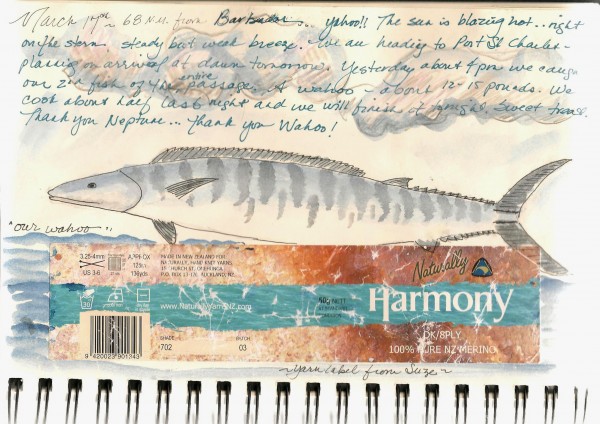 March 14pm ~ 68 N.M. from Barbados... yahoo!! The sun is blazing hot.. right
on the stern. steady but weak breeze. We are heading to Port St Charles -
planning on arrival at dawn tomorrow. Yesterday about 4pm we caught
our 2nd fish of the entire passage. A wahoo - about 12-15 pounds. We
cook about half last night and we will finish it tonight. Sweet treat.
Thank you Neptune... Thank you Wahoo!
"our wahoo"
3.25-4mm
US 3-6
APPROX
136yds
MADE IN NEW ZEALAND FOR
NATURALLY, HAND KNIT YARNS
15 CHURCH ST, ONEHUNGA,
AUCKLAND, NZ.
Naturally
30
www.NaturallyYarnsNZ.com
50g NETT
Harmony
DK/8PLY
100% PURE NZ MERINO
SHADE
702
BATCH
03
9420023901343
~yarn label from Suze~